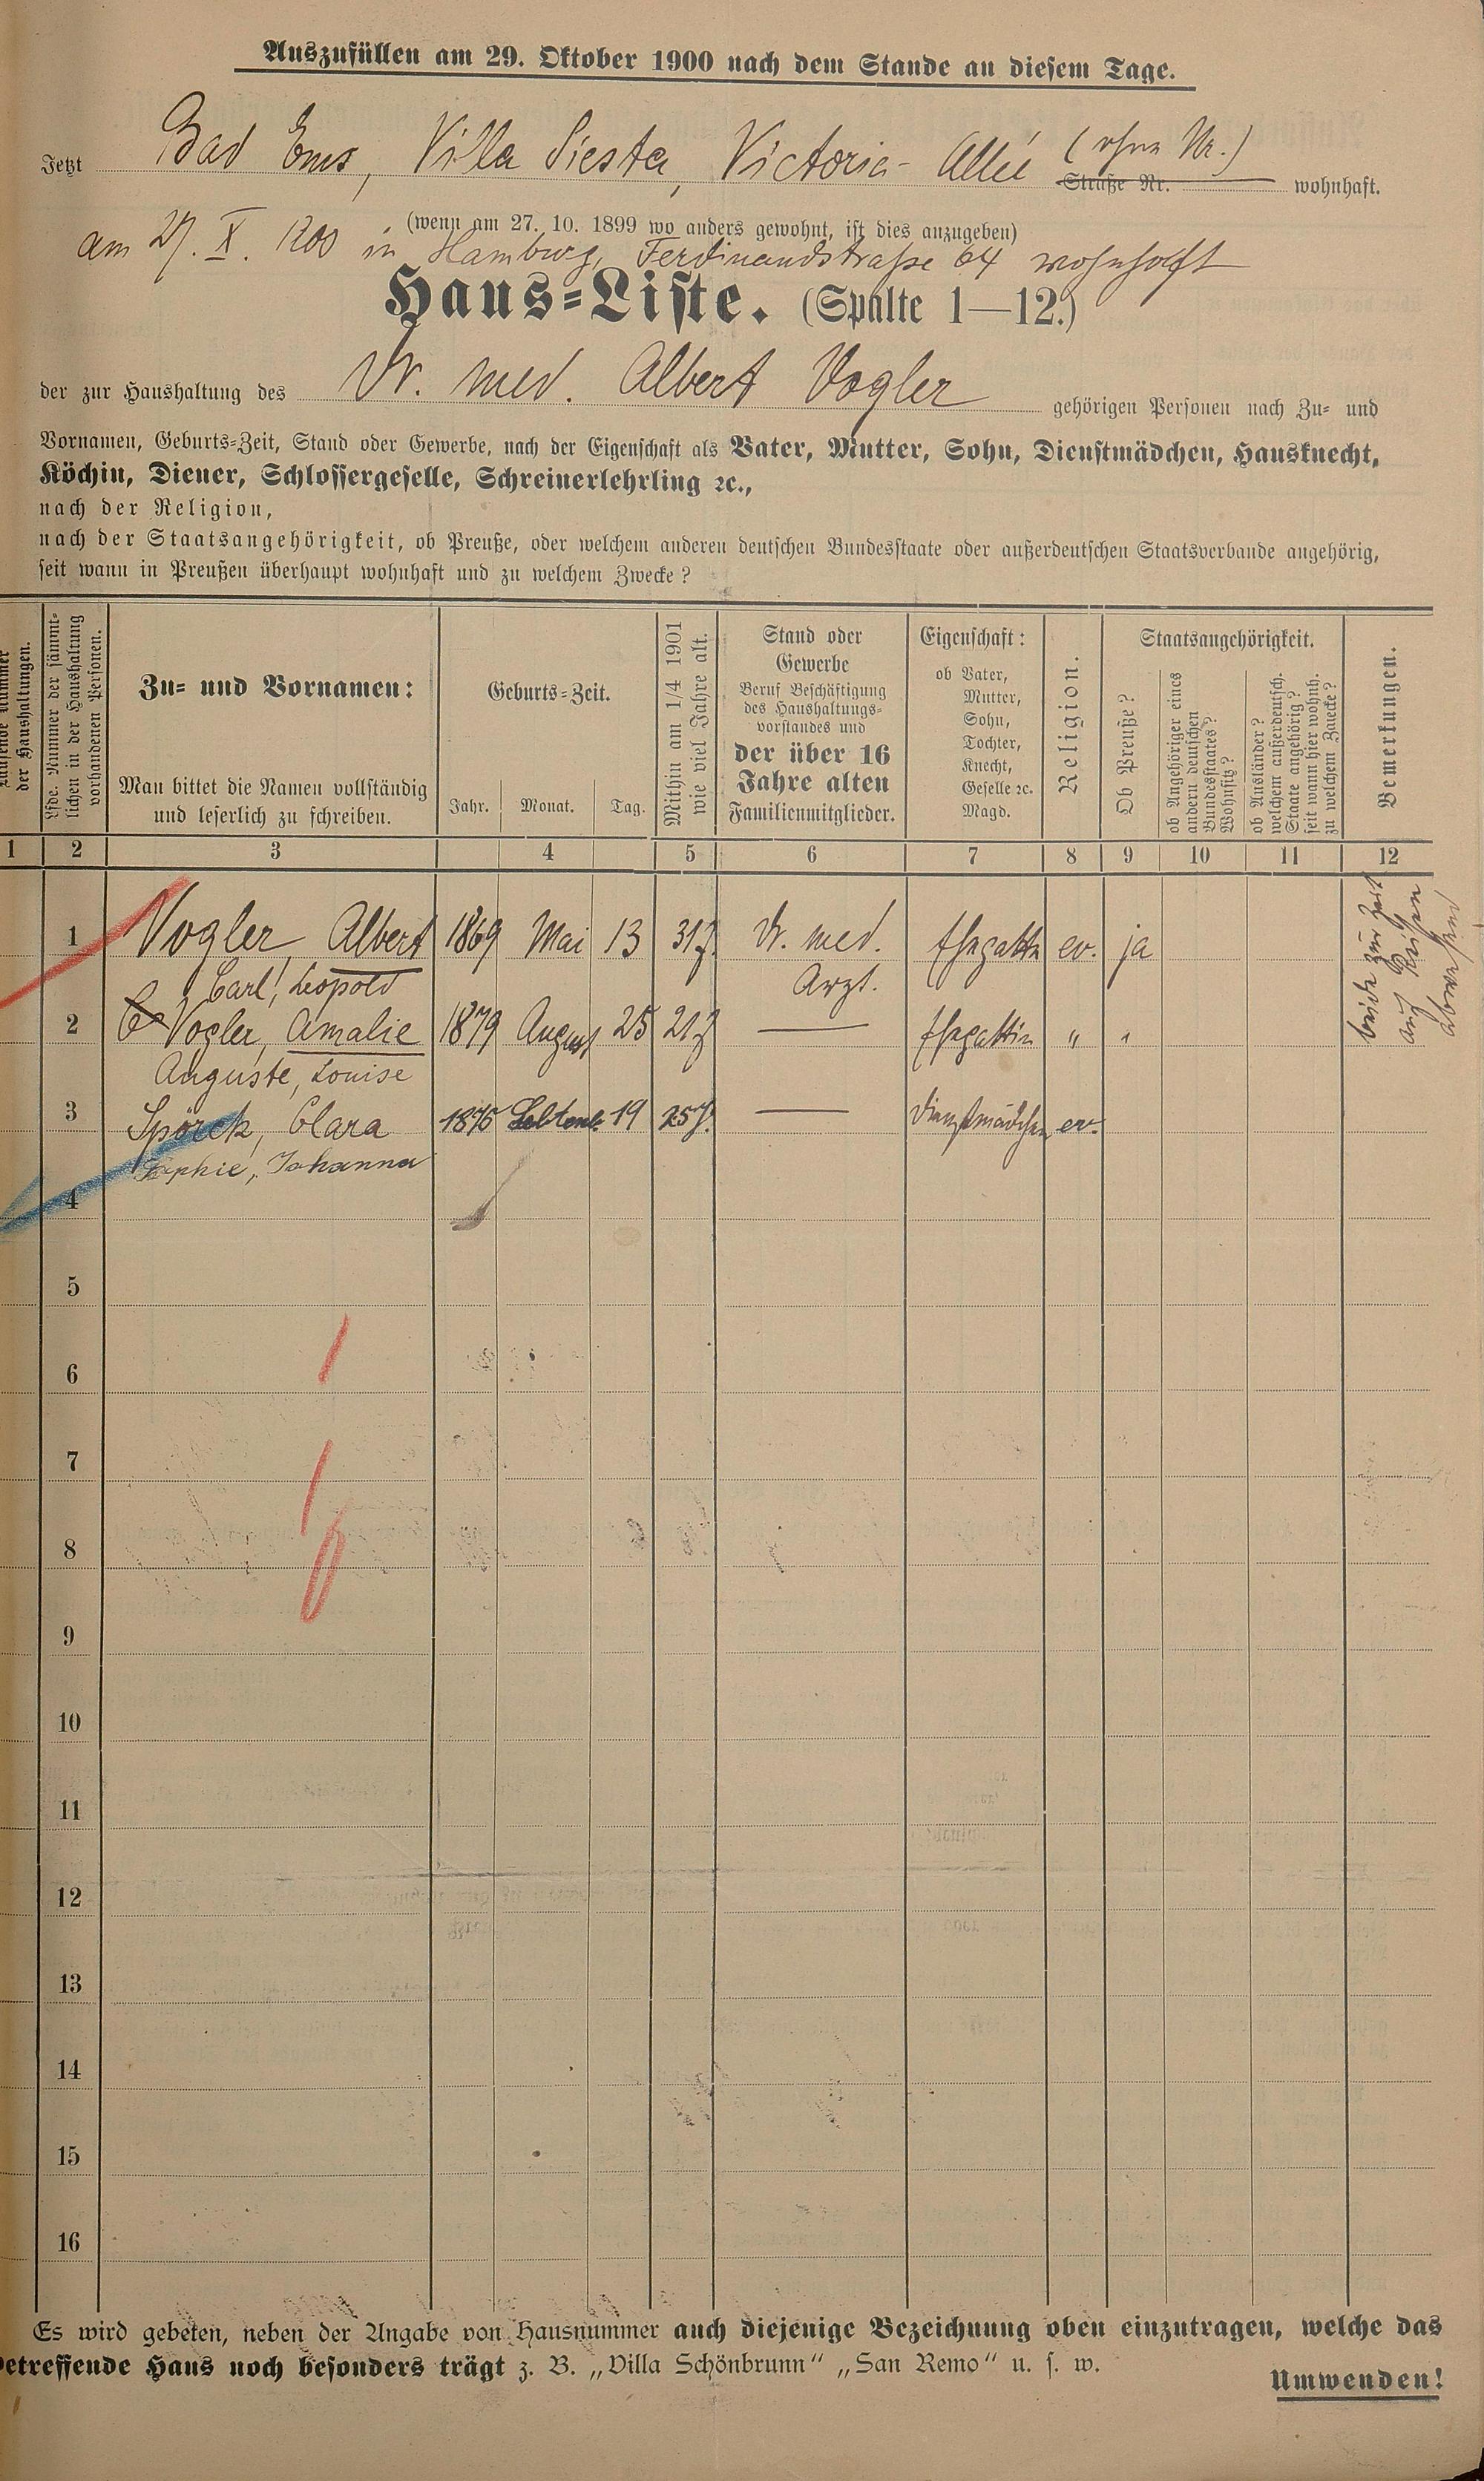 Auszufüllen am 29. Oktober 1900 nach dem Stande an diesem Tage.
Jetzt Bad Ems, Villa Siesta, Victoria-Allée (ohne Nr.) Straße Nr. wohnhaft.
(wenn am 27. 10. 1899 wo anders gewohnt, ist dies anzugeben)
am 27. X. in Hamburg, Ferdinandstraße 64 wohnhaft
Haus=Liste. (Spalte 1—12.)
der zur Haushaltung des Dr. med. Albert Vogler gehörigen Personen nach Zu= und
Vornamen, Geburts=Zeit, Stand oder Gewerbe, nach der Eigenschaft als Vater, Mutter, Sohn, Dienstmädchen, Hausknecht,
Köchin, Diener, Schlossergeselle, Schreinerlehrling ꝛc.,
nach der Religion,
nach der Staatsangehörigkeit, ob Preuße, oder welchem anderen deutschen Bundesstaate oder außerdeutschen Staatsverbande angehörig,
seit wann in Preußen überhaupt wohnhaft und zu welchem Zwecke?
Laufende Nummer
der Haushaltungen.
Lfde. Nummer der sämmt-
lichen in der Haushaltung
vorhandenen Personen.
Zu= und Vornamen:
Man bittet die Namen vollständig
und leserlich zu schreiben.
Geburts=Zeit.
Jahr. Monat. Tag.
Mithin am 1/4 1901
wie viel Jahre alt.
Stand oder
Gewerbe
Beruf Beschäftigung
des Haushaltungs-
vorstandes und
der über 16
Jahre alten
Familienmitglieder.
Eigenschaft:
ob Vater,
Mutter,
Sohn,
Tochter,
Knecht,
Geselle ꝛc.
Magd.
Religion.
Staatsangehörigkeit.
Ob Preuße?
ob Angehöriger eines
andern deutschen
Bundesstaates?
Wohnsitz?
ob Ausländer?
welchem außerdeutsch.
Staate angehörig?
seit wann hier wohnh.
zu welchem Zwecke?
Bemerkungen.
1 2 3 4 5 6 7 8 9 10 11 12
1 Vogler, Albert 1869 Mai 13 31J. Dr. med. Ehegatte ev. ja
Carl, Leopold Arzt.
beide zur Zeit
auf Reisen
abwesend
2 Vogler, Amalie 1879 August 25 21J — Ehegattin " "
Auguste, Louise
3 Spörck, Clara 1875 19 25J. — Dienstmädchen ev.
Sophie, Johanna
4
5
6
7
8
9
10
11
12
13
14
15
16
Es wird gebeten, neben der Angabe von Hausnummer auch diejenige Bezeichnung oben einzutragen, welche das
betreffende Haus noch besonders trägt z. B. „Villa Schönbrunn“ „San Remo“ u. s. w.
Umwenden!